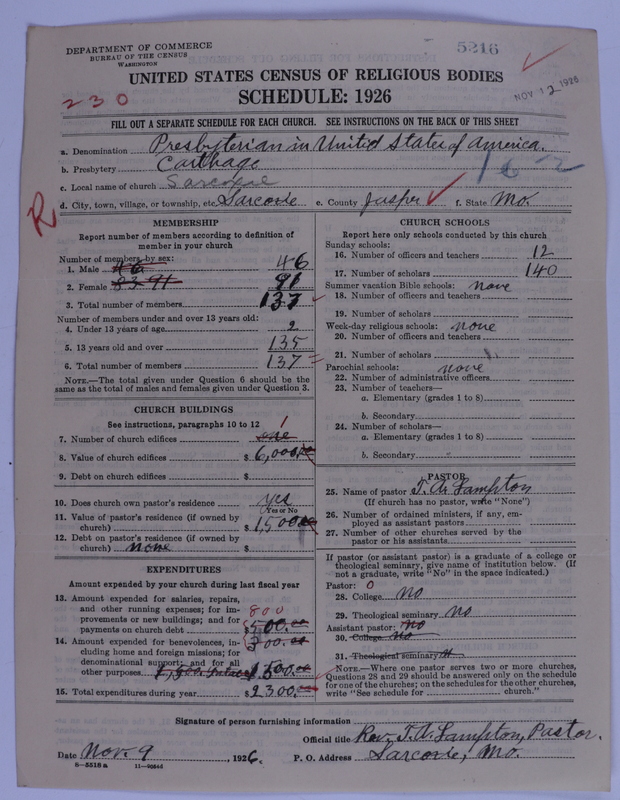 DEPARTMENT OF COMMERCE
BUREAU OF THE CENSUS
WASHINGTON
5216
UNITED STATES CENSUS OF RELIGIOUS BODIES
SCHEDULE: 1926
230
NOV 12 1926
FILL OUT A SEPARATE SCHEDULE FOR EACH CHURCH. SEE INSTRUCTIONS ON THE BACK OF THIS SHEET
a. Denomination Presbyterian in United States of America.
b. Presbytery Carthage
162
c. Local name of church Sarcoxie
d. City, town, village, or township, etc. Sarcoxie e. County Jasper f. State Mo.
R
MEMBERSHIP
Report number of members according to definition of
member in your church
Number of members by sex:
1. Male 46 46
2. Female 83 91 91
3. Total number of members 137
Number of members under and over 13 years old:
4. Under 13 years of age 2
5. 13 years old and over 135
6. Total number of members 137
NOTE.—The total given under Question 6 should be
the same as the total of males and females given under Question 3.
CHURCH BUILDINGS
See instructions, paragraphs 10 to 12
7. Number of church edifices one 1
8. Value of church edifices $ 6,000.00
9. Debt on church edifices $
10. Does church own pastor's residence yes
Yes or No
11. Value of pastor's residence (if owned by
church) $ 1,500.00
12. Debt on pastor's residence (if owned by
church) none $
EXPENDITURES
Amount expended by your church during last fiscal year
13. Amount expended for salaries, repairs,
and other running expenses; for im-
provements or new buildings; and for
payments on church debt 800 $ 500.00
14. Amount expended for benevolences, in-
cluding home and foreign missions; for
denominational support; and for all
other purposes 1500.00
15. Total expenditures during year $ 2300.00
CHURCH SCHOOLS
Report here only schools conducted by this church
Sunday schools:
16. Number of officers and teachers 12
17. Number of scholars 140
Summer vacation Bible schools: none
18. Number of officers and teachers
19. Number of scholars
Week-day religious schools: none
20. Number of officers and teachers
21. Number of scholars
Parochial schools: none
22. Number of administrative officers
23. Number of teachers—
a. Elementary (grades 1 to 8)
b. Secondary
24. Number of scholars—
a. Elementary (grades 1 to 8)
b. Secondary
PASTOR
25. Name of pastor T. A. Lampton
(If church has no pastor, write "None")
26. Number of ordained ministers, if any, em-
ployed as assistant pastors
27. Number of other churches served by the
pastor or his assistants
If pastor (or assistant pastor) is a graduate of a college or
theological seminary, give name of institution below. (If
not a graduate, write "No" in the space indicated.)
Pastor: 0
28. College no
29. Theological seminary no
Assistant pastor: no
30. College no
31. Theological seminary
NOTE.—Where one pastor serves two or more churches,
Questions 28 and 29 should be answered only on the schedule
for one of the churches; on the schedules for the other churches,
write "See schedule for church."
Signature of person furnishing information
Official title Rev. T. A. Lampton, Pastor.
Date Nov. 9, 1926. P. O. Address Sarcoxie, Mo.
8—5518a 11—9064d